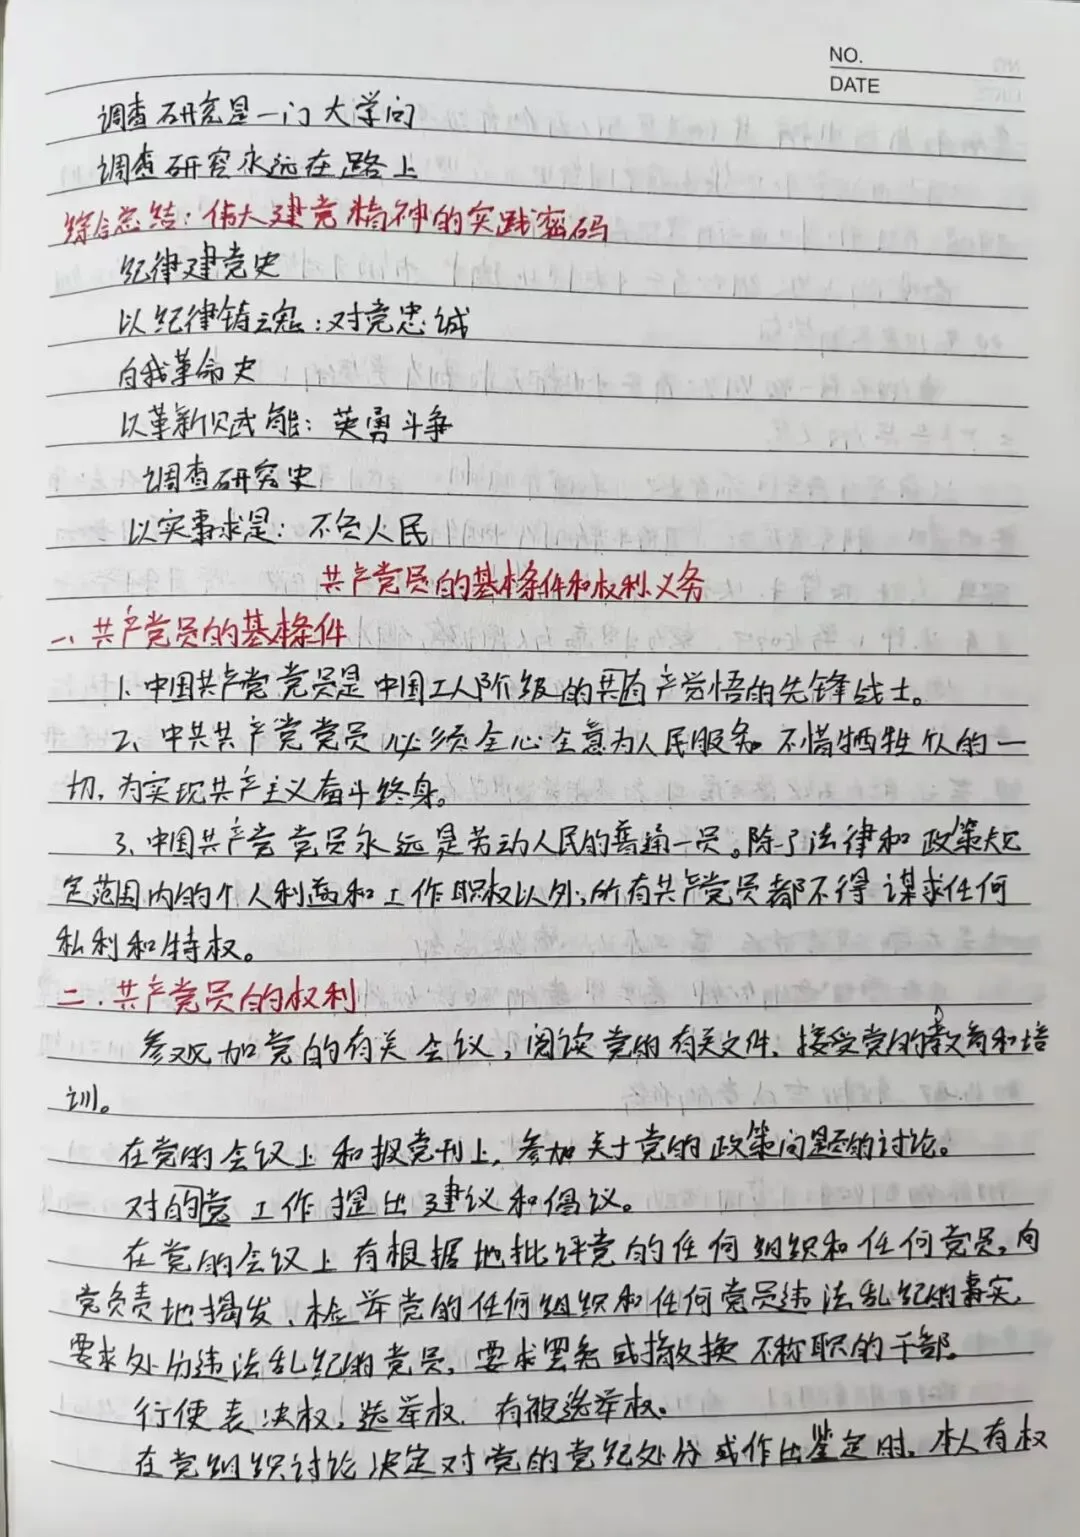 NO.
DATE
调查研究是一门大学问
调查研究永远在路上
综合总结：伟大建党精神的实践密码
纪律建党史
以纪律铸魂：对党忠诚
自我革命史
以革新赋能：英勇斗争
调查研究史
以实事求是：不负人民
共产党员的基本条件和权利义务
一、共产党员的基本条件
1、中国共产党党员是中国工人阶级的共有产觉悟的先锋战士。
2、中共共产党党员必须全心全意为人民服务。不惜牺牲个人的一
切，为实现共产主义奋斗终身。
3、中国共产党党员永远是劳动人民的普通一员。除了法律和政策规
定范围内的个人利益和工作职权以外，所有共产党员都不得谋求任何
私利和特权。
二、共产党员的权利
参观加党的有关会议，阅读党的有关文件、接受党的教育和培
训。
在党的会议上和报党刊上，参加关于党的政策问题的讨论。
对的党工作提出建议和倡议。
在党的会议上有根据地批评党的任何组织和任何党员，向
党负责地揭发、检举党的任何组织和任何党员违法乱纪的事实，
要求处分违法乱纪的党员，要求罢免或撤换不称职的干部。
行使表决权，选举权，有被选举权。
在党组织讨论决定对党的党纪处分或作出鉴定时，本人有权